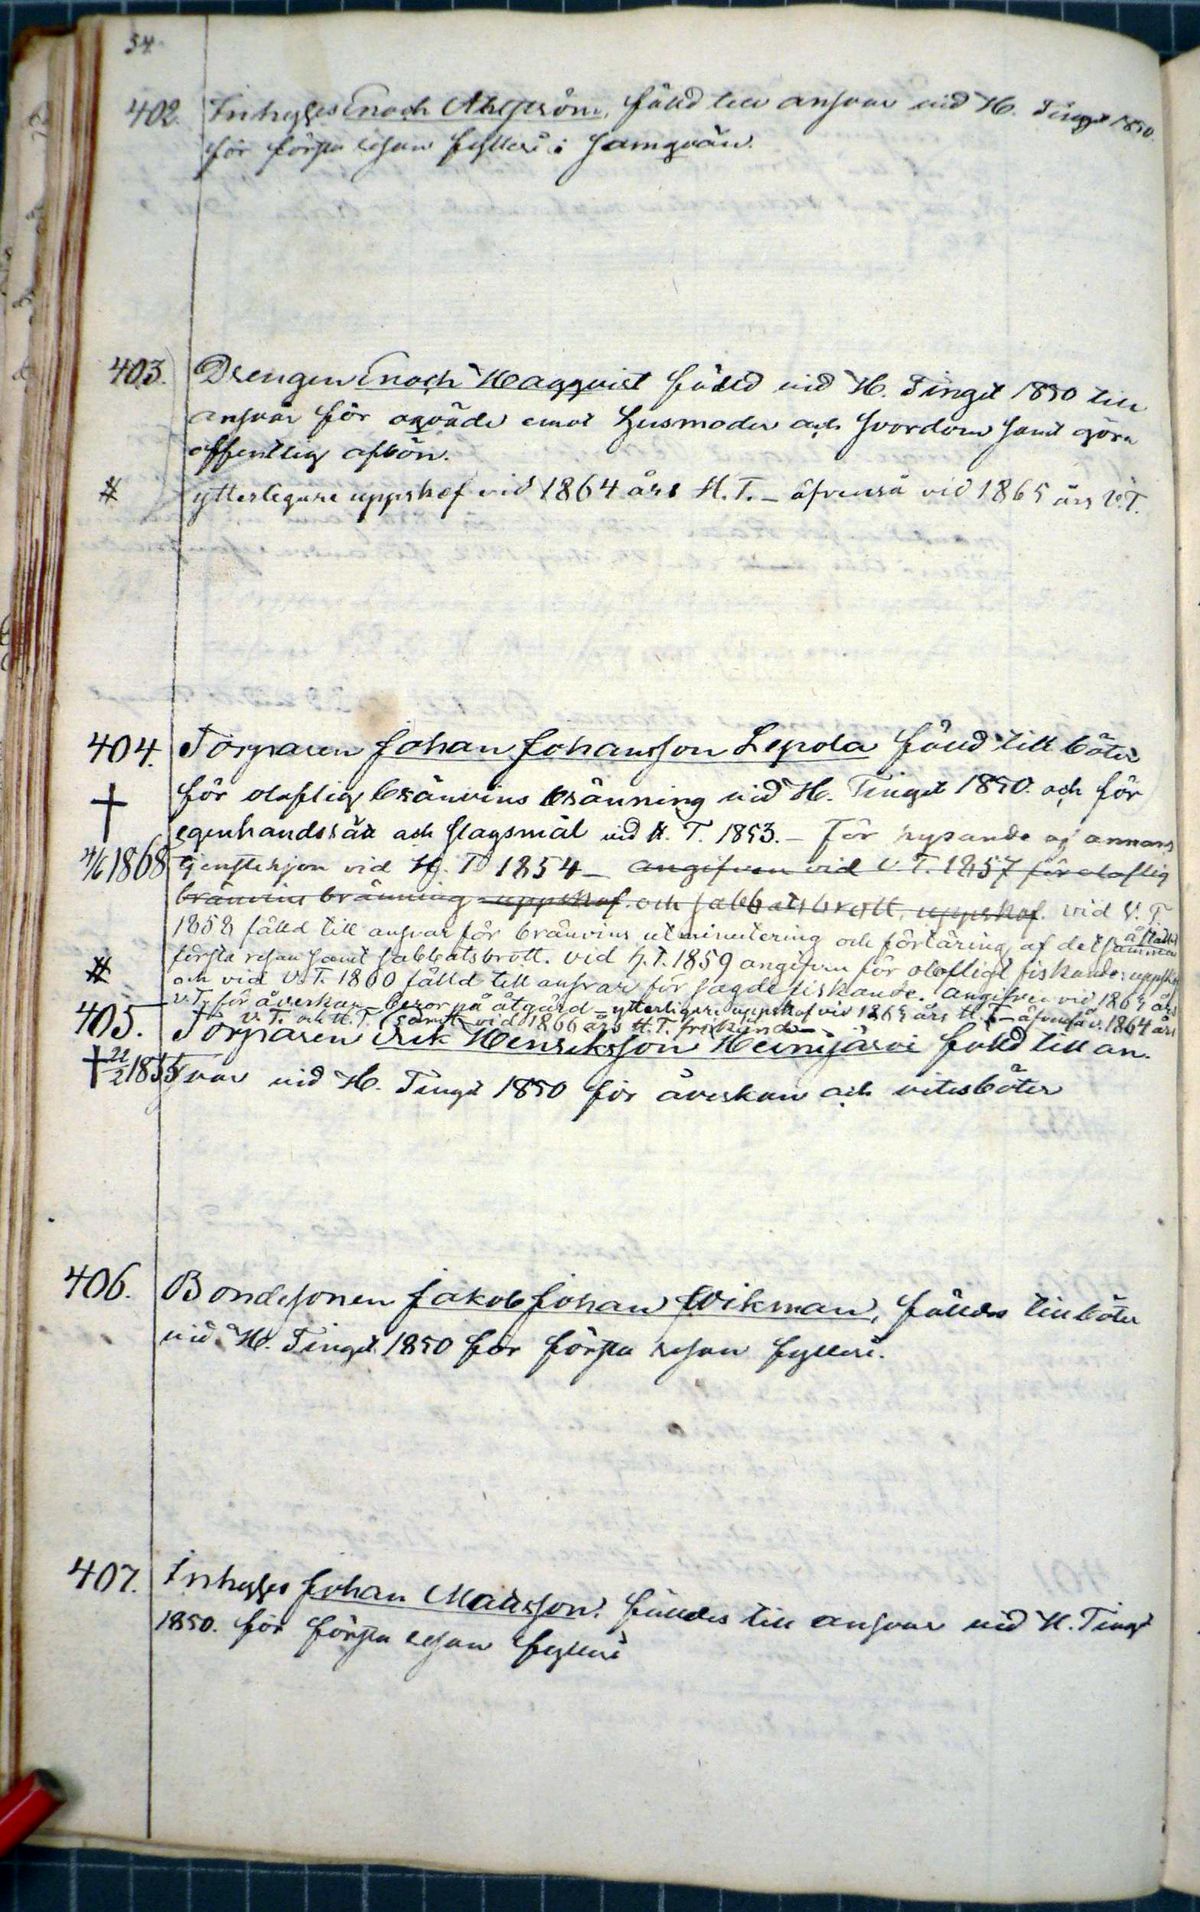 54.
402. Inhyses Enoch Ahlström, fälld till ansvar vid H. Tinget 1850.
för första resan fylleri i samqväm.
403. Drengen Enoch Hagqvist fälld vid H. Tinget 1850 till
ansvar för oqväde emot husmoder och svordom samt göra
offentlig afbön.
# ytterligare uppskof vid 1864 års H.T. – äfvenså vid 1865 års V.T.
404. Torparen Johan Johansson Lepola fälld till böter
för olaflig bränvins bränning vid H. Tinget 1850. och för
† egenhandsrätt och slagsmål vid H. T. 1853. – för hysande af annans
4/6 1868 tjenstehjon vid H. T. 1854 – angifven vid V. T. 1857 för olaflig
bränvins bränning uppskof och sabbatsbrott, uppskof. vid V. T.
1858 fälld till ansvar för bränvins utminutering och förtäring af det samma å stället
första resan samt sabbatsbrott. vid H. T. 1859 angifven för olofligt fiskande: uppskof
# och vid V. T. 1860 fälld till ansvar för sagde fiskande. angifven vid 1863 års
V. T. för åverkan – beror på åtgärd – ytterligare uppskof vid 1863 års H. T. – äfvenså v. 1864 års
V. T. och H. T. samt vid 1866 års H. T. frikänd –
405. Torparen Erik Henriksson Heinijärvi fälld till an-
† 22/2 1855 svar vid H. Tinget 1850 för åverkan och vitesböter
406. Bondesonen Jakob Johan Wikman, fälldes till böter
vid H. Tinget 1850 för första resan fylleri.
407. Inhyses Johan Mattsson. fälldes till ansvar vid H. Tinget
1850. för första resan fylleri